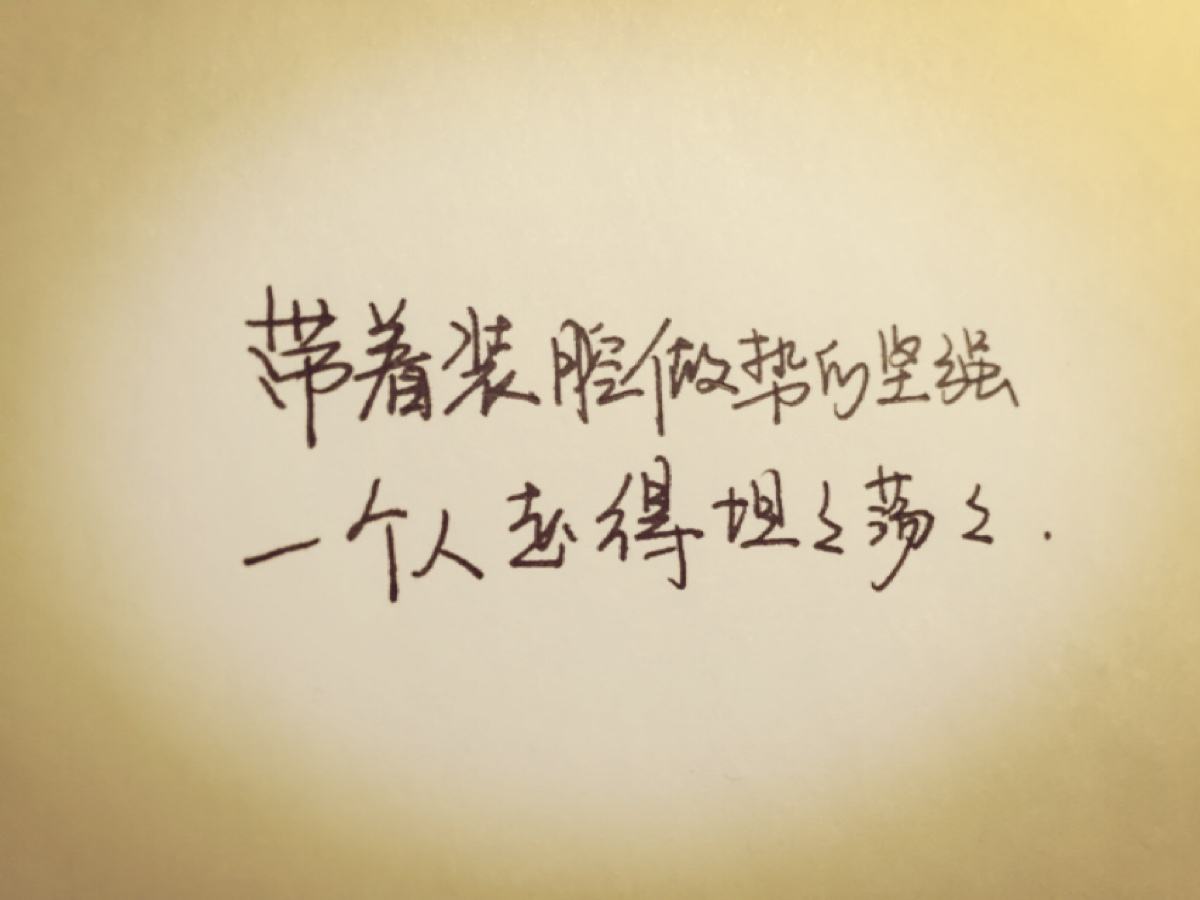 带着装腔做势的坚强
一个人走得坦々荡々.